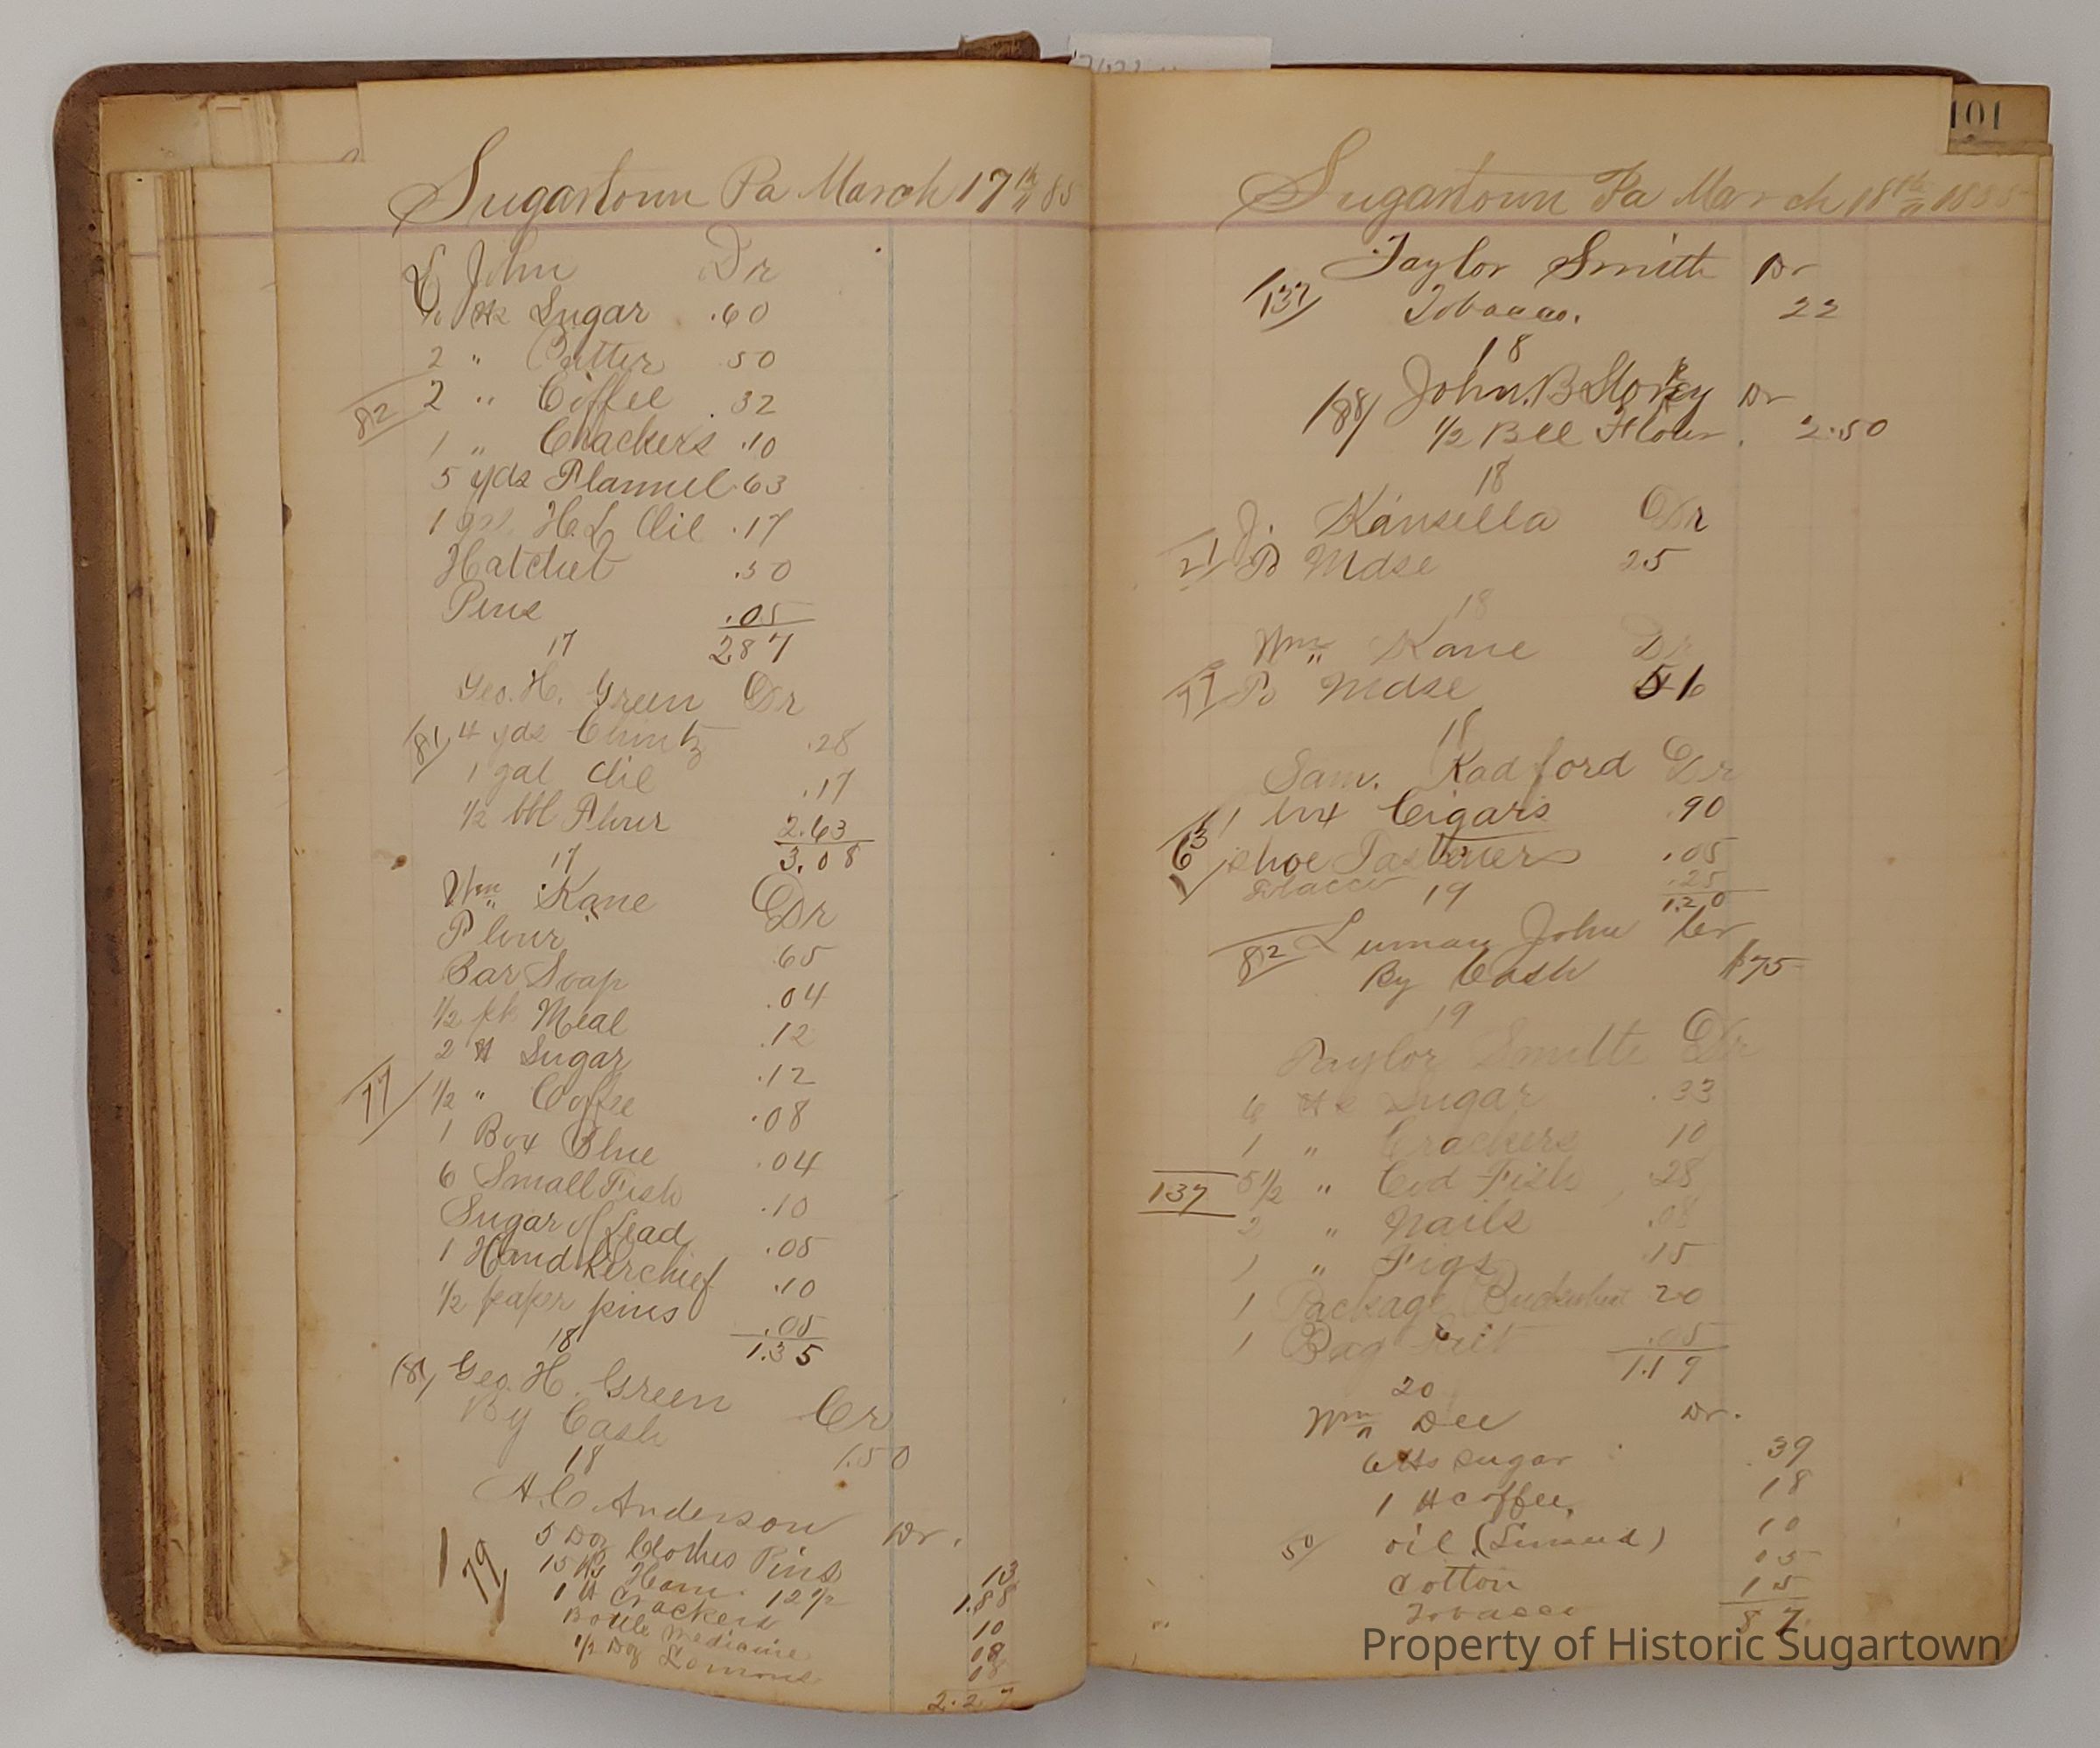 Sugartown Pa March 17th 85
L John Dr
lbs Sugar .60
2 " Butter 50
82
2 " Coffee .32
1 " Crackers .10
5 yds Flannel .63
1 gal. H.L Oil .17
Hatchet .50
Pins .05
17 2.87
Geo. H. Green Dr
81 4 yds Chintz .28
1 gal Oil .17
1/2 bbl Flour 2.63
17 3.08
Wm Kane Dr
Flour .65
Bar Soap .04
1/2 pk Meal .12
2 lb Sugar .12
77 1/2 " Coffee .08
1 Box Blue .04
6 Small Fish .10
Sugar of Lead .05
1 Handkerchief .10
1/2 paper pins .05
18 1.35
81 Geo. H. Green Cr
By Cash 1.50
18
H.C. Anderson Dr.
79 5 Doz Clothes Pins 13
15 lbs Ham 12 1/2 1.88
1 lb Crackers 10
Bottle Medicine 08
1/2 Doz Lemons 08
2.27
101
Sugartown Pa March 18th 1885
Taylor Smith Dr
137 Tobacco. 22
18
John B Storey Dr
188 1/2 Bbl Flour. 2.50
18
J. Kinsella Dr
21 To Mdse 25
18
Wm Kane Dr
77 To Mdse 56
18
Sam. Radford Dr
63 1 box Cigars .90
Shoe Fastener .05
Tobacco .25
19 1.20
82 Luman John Cr
By Cash $75
19
Taylor Smith Dr
6 lbs Sugar .33
1 " Crackers 10
137 5 1/2 " Cod Fish .28
2 " Nails .08
1 " Figs .15
1 Package Buckwheat 20
1 Bag Salt .05
1.19
20
Wm Dee Dr.
6 lbs sugar 39
1 lb coffee, 18
50 oil (Linseed) 10
Cotton 05
Tobacco 15
87
Property of Historic Sugartown